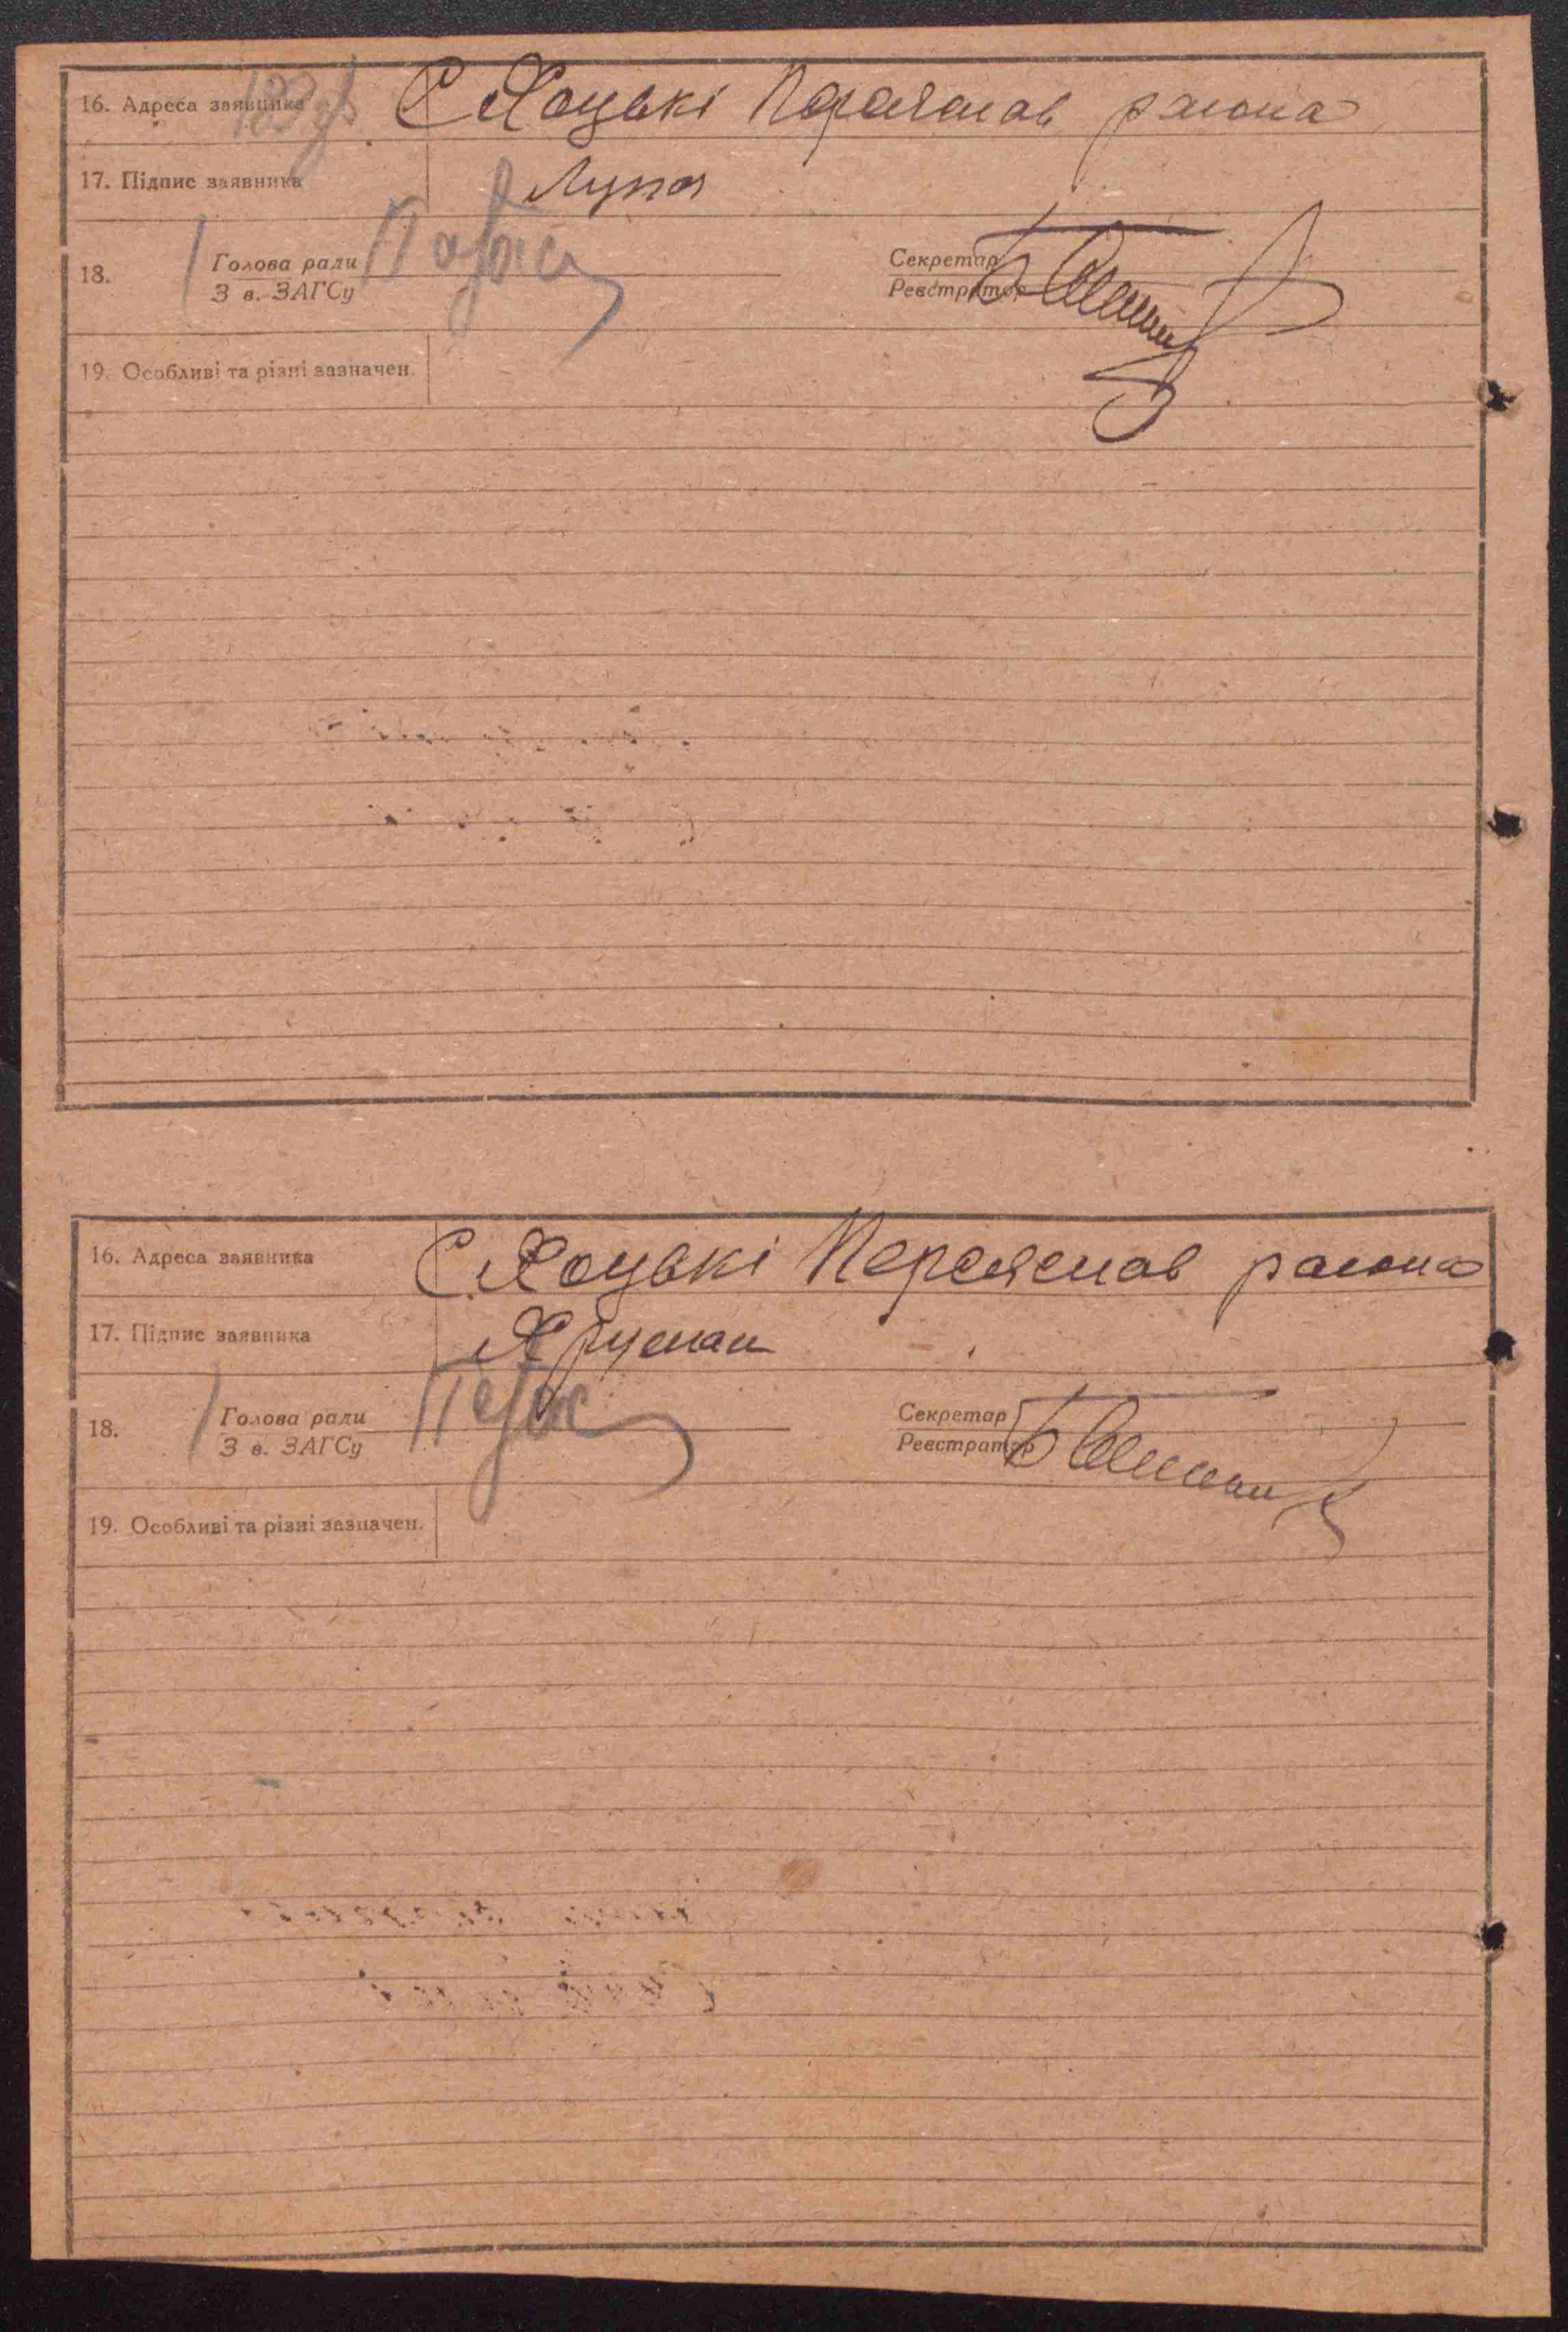 16. Адреса заявника С Хоцькі Переяслав района
17. Підпис заявника Лупа
18. Голова ради Секретар
З в. ЗАГСу Реєстратор
19. Особливі та різні зазначен.
16. Адреса заявника С Хоцькі Переяслав района
17. Підпис заявника
18. Голова ради Секретар
З в. ЗАГСу Реєстратор
19. Особливі та різні зазначен.